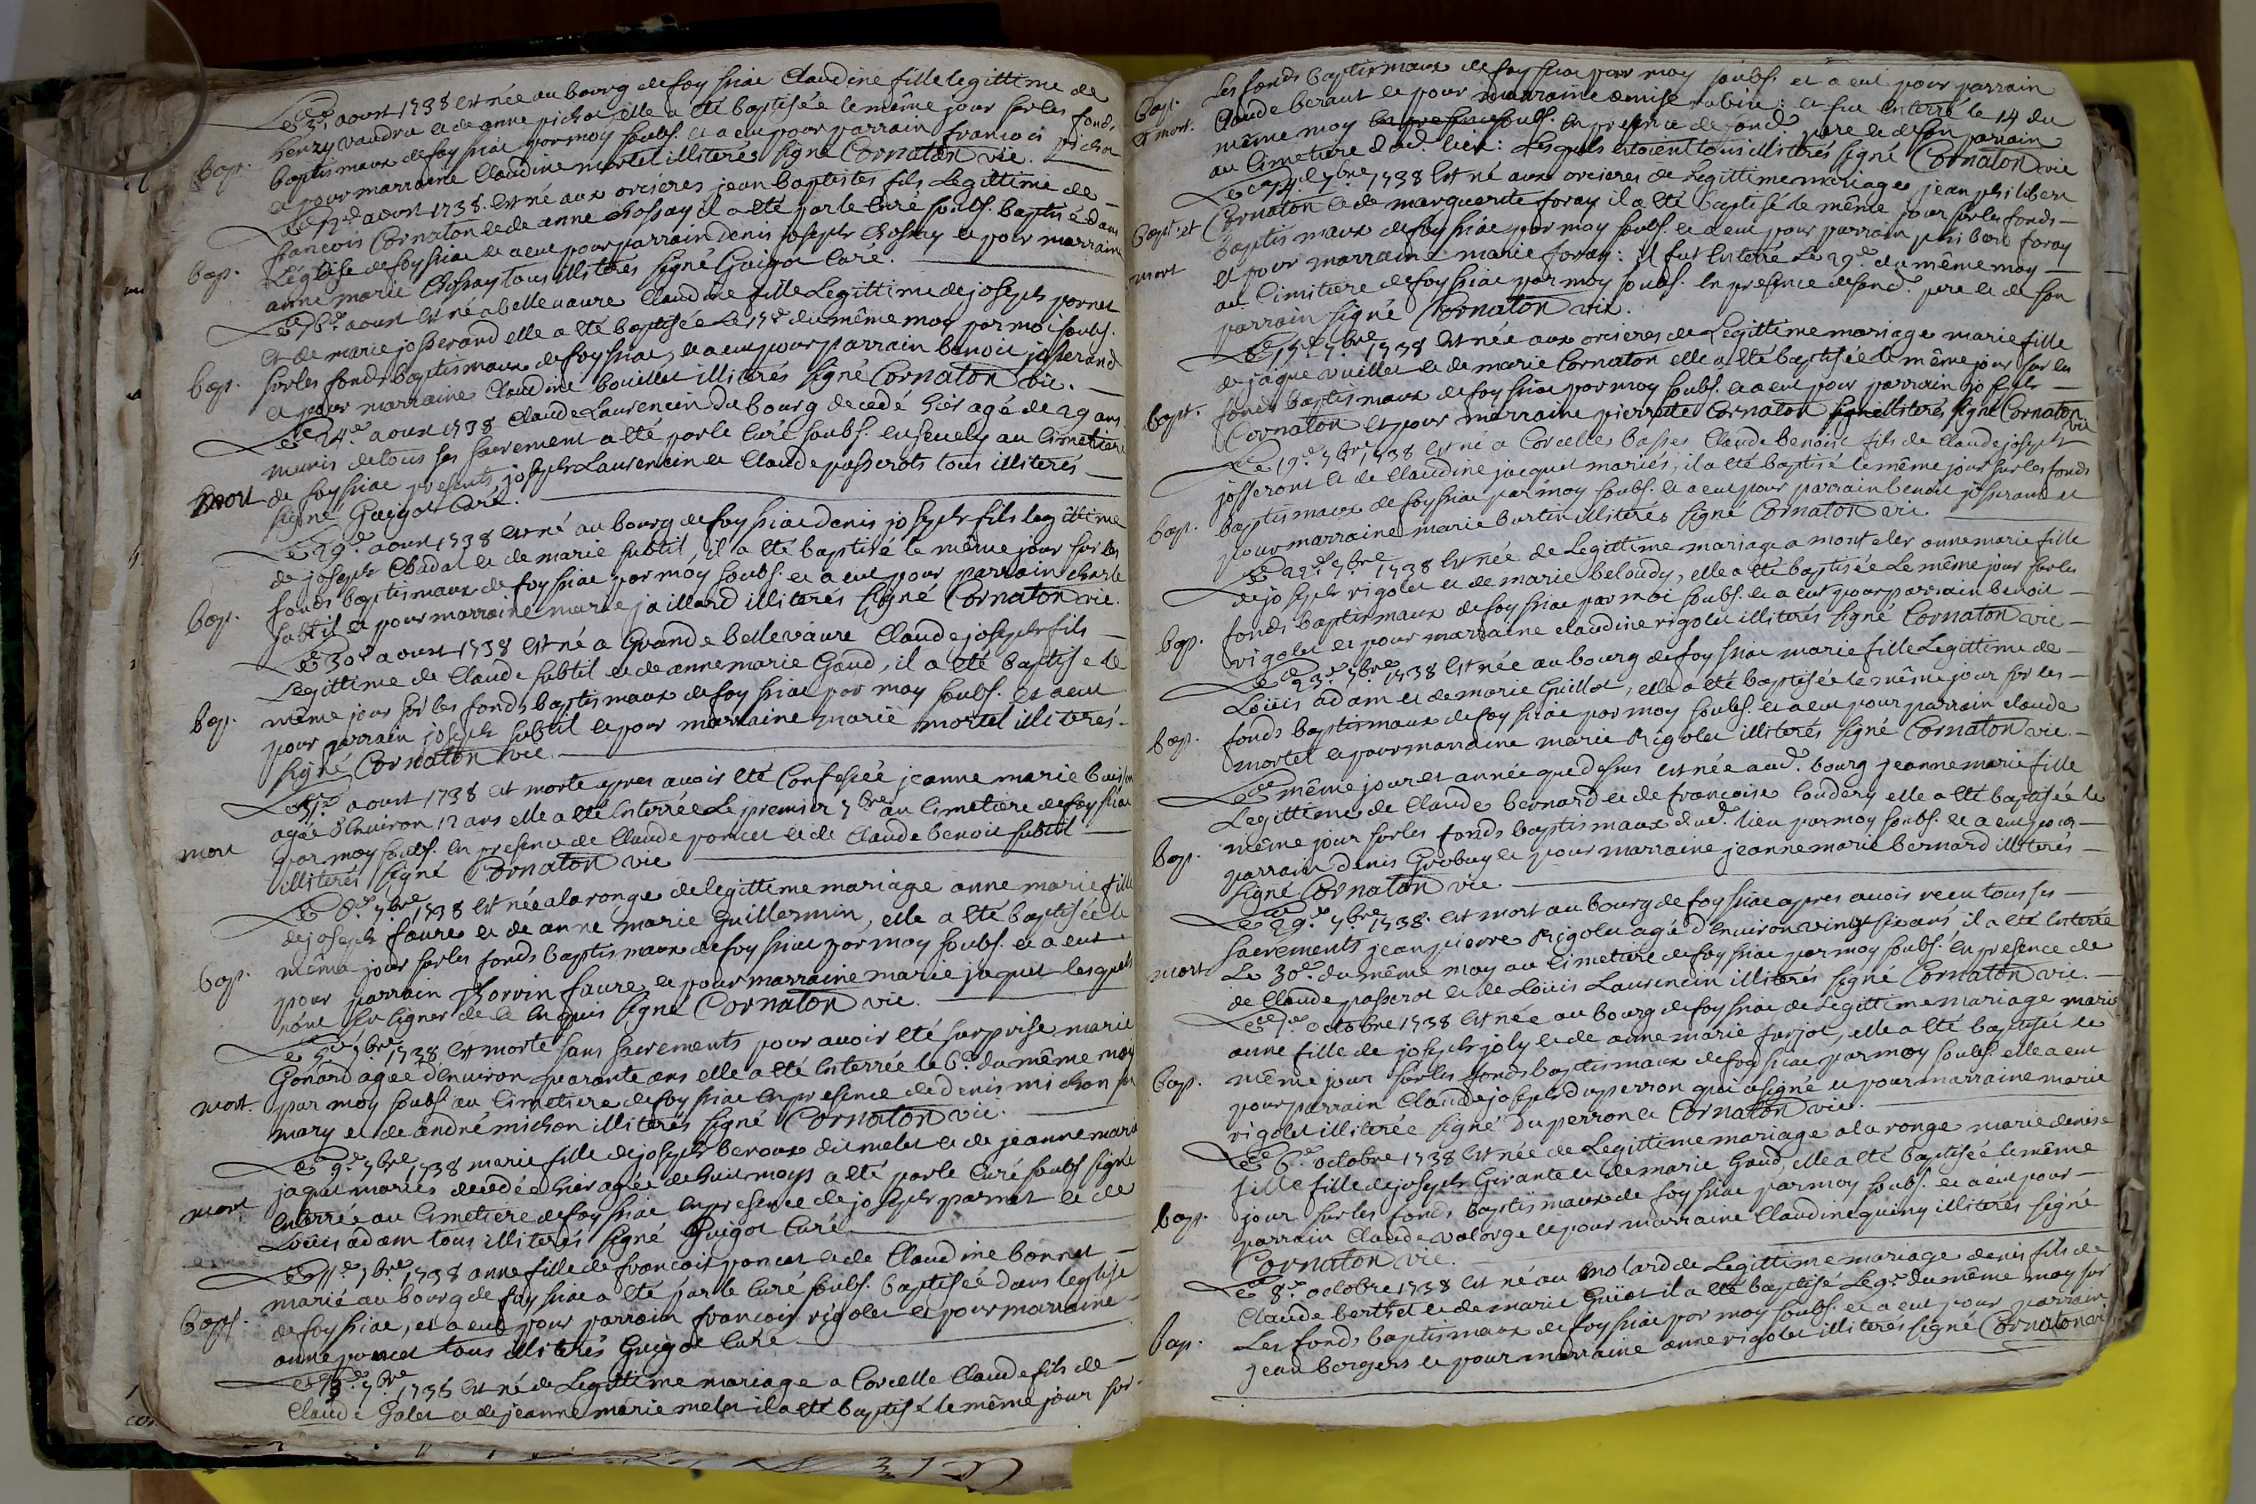 Le 3e. aoust 1738 est née au bourg de foyssiac Claudine fille legittime de
henry vaudru et de anne pichot elle a été baptisée le même jour sur les fonds
bap. baptismaux de foyssiac par moy soubs. et a eu pour parrain francois pichot
et pour marraine Claudine mortel illiterés signé Cornaton vic.
Le 12e aoust 1738. est né aux orcieres jean baptistes fils Legittime de
francois Cornaton et de anne Chossay il a été par le Curé soubs. baptisé dans
bap. L'église de foyssiac et a eu pour parrain denis joseph Chossay et pour marraine
anne marie Chossay tous illiterés signé Guigot Curé.
Le aoust est né a bellevaure Claudine fille Legittime de joseph pornet
et de marie josserand elle a été baptisée Le 17e du même moy par moi soubs.
bap. sur les fonds baptismaux de foyssiac, et a eu pour parrain benoit josserand
et pour marraine Claudine bouillet illiterés signé Cornaton vic.
Le 24e. aoust 1738 Claude Laurencin du bourg decedé hier agé de 29 ans
munis de tous ses sacrement a été par le Curé soubs. ensevely au Cimetiere
mort de foyssiac presents joseph Laurencin et Claude passerots tous illiterés
signé Guigot Curé.
Le 29e. aoust 1738 est né au bourg de foyssiac denis joseph fils legittime
de joseph Chadal et de marie subtil, il a été baptisé le même jour sur les
fonds baptismaux de foyssiac par moy soubs. et a eu pour parrain charle
bap. subtil et pour marraine marie jaillard illiterés signé Cornaton vic.
Le 30e aoust 1738 est né a Grande bellevaure Claude joseph fils
Legittime de Claude subtil et de anne marie Gaud, il a été baptisé le
bap. même jour sur les fonds baptismaux de foyssiac par moy soubs. et a eu
pour parrain joseph subtil et pour marraine marie mortel illiterés.
signé Cornaton vic.
Le 31e aoust 1738 est morte apres avoir été Confessée jeanne marie
agée d'Environ 12 ans elle a été Enterrée Le premier 7bre au Cimetiere de foyssiac
mort par moy soubs. en presence de Claude poncet et de Claude benoit subtil
illiterés signé Cornaton vic
Le 7bre 1738 est née a la ronge de legittime mariage anne marie fille
de joseph faure et de anne marie Guillermin, elle a été baptisée le
bap. même jour sur les fonds baptismaux de foyssiac par moy soubs. et a eu
pour parrain faure et pour marraine marie jaquet lesquels
n'ont sçu signer de ce Enquis signé Cornaton vic.
Le 5e 7bre 1738 est morte sans sacrements pour avoir été surprise marie
Gonard agée d'Environ quarante ans elle a été Enterrée le 6e. du même moy
mort. par moy soubs. au Cimetiere de foyssiac en presence de denis michon son
mary et de andré michon illiterés signé Cornaton vic.
Le 9e. 7bre 1738 marie fille de joseph beroux dit melet et de jeanne marie
jaquet mariés decedée hier agée de huit moys a été par le Curé soubs signé
mort Enterrée au Cimetiere de foyssiac en presence de joseph parnet et de
Loüis adam tous illiterés signé Guigot Curé.
Le 11e. 7bre 1738 anne fille de francois poncet et de Claudine bonnet
marié au bourg de foyssiac a été par le Curé soubs. baptisée dans leglise
bapt. de foyssiac, et a eu pour parrain francois rigolet et pour marraine
anne poncet tous illiterés Guigot Curé
Le 13e. 7bre 1738 est né de Legittime mariage a Corcelle Claude fils de
Claude Galet et de jeanne marie melet il a été baptisé le même jour sur
bap. Les fonds baptismaux de foyssiac par moy soubs. et a eu pour parrain
et mort. Claude beraut et pour marraine denise robin: et fut Enterré le 14 du
même moy en presence soubs. en presence de sond. pere et de son parrain
au Cimetiere dud. lieu: Lesquels etoient tous illiterés signé Cornaton vic
Le 14e. 7bre 1738 est né aux orcieres de Legittime mariage jean philibert
bapt. et Cornaton et de marguerite foray il a été baptisé le même jour sur les fonds
mort baptismaux de foyssiac par moy soubs. et a eu pour parrain foray
et pour marraine marie foray: il fut Enterré Le 29e. du même moy
au Cimitiere de foyssiac par moy soubs. en presence de sond. pere et de son
parrain signé Cornaton vic.
Le 15e. 7bre 1738 est née aux orcieres de Legittime mariage marie fille
de jaque vuillet et de marie Cornaton elle a été baptisée le même jour sur les
bapt. fonds baptismaux de foyssiac par moy soubs. et a eu pour parrain joseph
Cornaton et pour marraine pierrette Cornaton signé illiterés signé Cornaton
vic
Le 19e. 7bre 1738 est né a Corcelles basses Claude benoist fils de Claude joseph
josseront et de Claudine jacquet mariés, il a été baptisé le même jour sur les fonds
bap. baptismaux de foyssiac par moy soubs. et a eu pour parrain benoit josserant et
pour marraine marie burtin illiterés signé Cornaton vic.
Le 22e. 7bre 1738 est née de Legittime mariage a anne marie fille
de joseph rigolet et de marie beloudy, elle a été baptisée Le même jour sur les
bap. fonds baptismaux de foyssiac par moi soubs. et a eu pour parrain benoit
rigolet et pour marraine claudine rigolet illiterés signé Cornaton vic
Le 23e. 7bre 1738 est née au bourg de foyssiac marie fille Legittime de
Loüis adam et de marie Guillot, elle a été baptisée le même jour sur les
bap. fonds baptismaux de foyssiac par moy soubs. et a eu pour parrain claude
mortel et pour marraine marie Rigolet illiterés signé Cornaton vic.
Le même jour et année que dessus est née aud. bourg jeanne marie fille
Legittime de Claude bernard et de francoise loudery elle a été baptisée le
bap. même jour sur les fonds baptismaux dud. lieu par moy soubs. et a eu pour
parrain denis Grobuy et pour marraine jeanne marie bernard illiterés
signé Cornaton vic.
Le 29e. 7bre 1738. est mort au bourg de foyssiac apres avoir recu tous ses
sacrements jean pierre Rigolet agé d'Environ vingt six ans il a été Enterré
mort Le 30e. du même moy au Cimetiere de foyssiac par moy soubs. en presence de
de Claude passerot et de Loüis Laurencin illiterés signé Cornaton vic.
Le octobre 1738 est née au bourg de foyssiac de Legittime mariage marie
anne fille de joseph joly et de anne marie furjot, elle a été baptisée le
bap. même jour sur les fonds baptismaux de foyssiac par moy soubs. elle a eu
pour parrain Claude joseph duperron qui a signé et pour marraine marie
rigolet illiterée signé Duperron et Cornaton vic.
Le 6e. octobre 1738 est née de Legittime mariage a la ronge marie denise
fille fille de joseph Girante et de marie Gaud, elle a été baptisée le même
bap. jour sur les fonds baptismaux de foyssiac par moy soubs. et a eu pour
parrain Claude valorge et pour marraine Claudine quiny illiterés signé
Cornaton vic.
Le 8e. octobre 1738 est né au molard de Legittime mariage denis fils de
Claude berthet et de marie Guiot il a été baptisé Le 9e. du même moy sur
bap. Les fonds baptismaux de foyssiac par moy soubs. et a eu pour parrain
jean borgers et pour marraine anne rigolet illiterés signé Cornaton vic